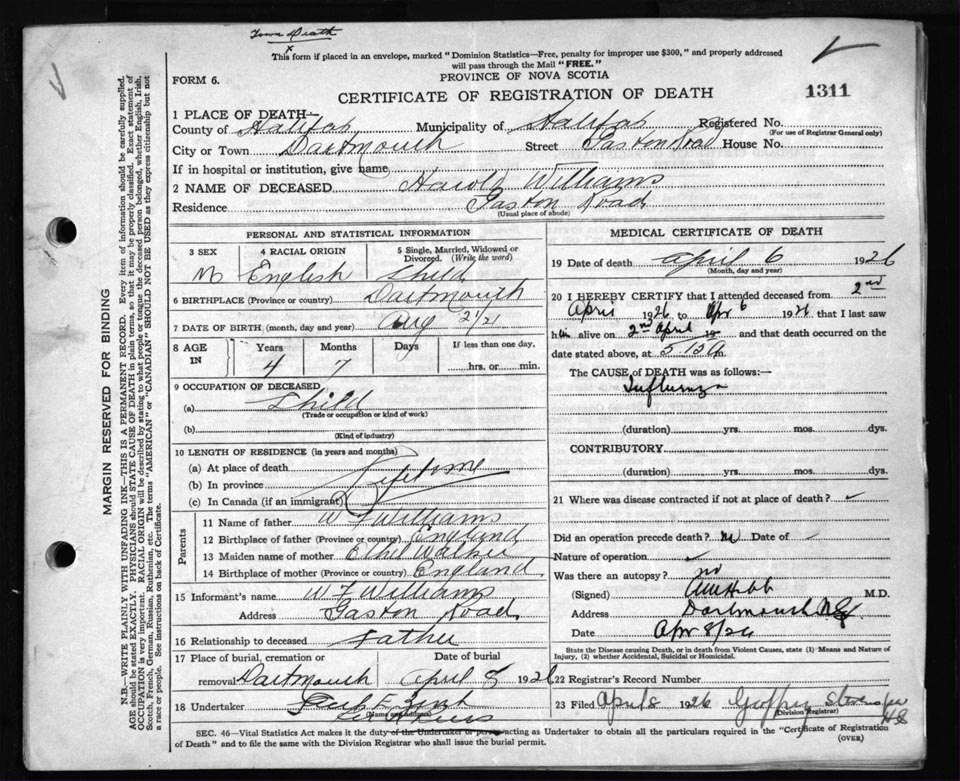 Town Death
This form if placed in an envelope, marked "Dominion Statistics—Free, penalty for improper use $300," and properly addressed
will pass through the Mail "FREE."
FORM 6.
PROVINCE OF NOVA SCOTIA
CERTIFICATE OF REGISTRATION OF DEATH
1311
1 PLACE OF DEATH—
County of Halifax Municipality of Halifax Registered No.
(For use of Registrar General only)
City or Town Dartmouth Street Gaston Road House No.
If in hospital or institution, give name
2 NAME OF DECEASED Harold Williams
Residence Gaston Road
(Usual place of abode)
PERSONAL AND STATISTICAL INFORMATION
3 SEX 4 RACIAL ORIGIN 5 Single, Married, Widowed or Divorced. (Write the word)
M English Child
6 BIRTHPLACE (Province or country) Dartmouth
7 DATE OF BIRTH (month, day and year) Aug 21/21
8 AGE IN Years Months Days If less than one day,
4 7 hrs. or min.
9 OCCUPATION OF DECEASED
(a) Child
(Trade or occupation or kind of work)
(b)
(Kind of industry)
10 LENGTH OF RESIDENCE (in years and months)
(a) At place of death
(b) In province Lifetime
(c) In Canada (if an immigrant)
Parents
11 Name of father W F Williams
12 Birthplace of father (Province or country) England
13 Maiden name of mother Ethel Walker
14 Birthplace of mother (Province or country) England
15 Informant's name W F Williams
Address Gaston Road
16 Relationship to deceased Father
17 Place of burial, cremation or Date of burial
removal Dartmouth April 8 1926
18 Undertaker
(Name and address)
MEDICAL CERTIFICATE OF DEATH
19 Date of death April 6 1926
(Month, day and year)
20 I HEREBY CERTIFY that I attended deceased from 2nd
April 1926 to Apr 6 1926 that I last saw
him alive on 2nd April 19 and that death occurred on
date stated above, at 5.15 a m.
The CAUSE of DEATH was as follows:—
Influenza
(duration) yrs. mos. dys.
CONTRIBUTORY
(duration) yrs. mos. dys.
21 Where was disease contracted if not at place of death?
Did an operation precede death? no Date of
Nature of operation
Was there an autopsy? no
(Signed) M.D.
Address Dartmouth N.S.
Date Apr 8/26
State the Disease causing Death, or in death from Violent Causes, state (1) Means and Nature of
Injury, (2) whether Accidental, Suicidal or Homicidal.
22 Registrar's Record Number
23 Filed April 8 1926
(Division Registrar)
SEC. 46—Vital Statistics Act makes it the duty of the Undertaker or person acting as Undertaker to obtain all the particulars required in the "Certificate of Registration
of Death" and to file the same with the Division Registrar who shall issue the burial permit.
(OVER)
MARGIN RESERVED FOR BINDING
N.B.—WRITE PLAINLY WITH UNFADING INK—THIS IS A PERMANENT RECORD. Every item of information should be carefully supplied.
AGE should be stated EXACTLY. PHYSICIANS should STATE CAUSE OF DEATH in plain terms, so that it may be properly classified. Exact statement of
OCCUPATION is very important. RACIAL ORIGIN will be described by stating to what people or tongue the deceased person belonged, whether English, Irish,
Scotch, French, German, Russian, Ruthenian, etc. The terms "AMERICAN" or "CANADIAN" SHOULD NOT BE USED as they express citizenship but not
a race or people. See instructions on back of Certificate.